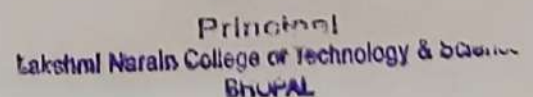 Principal
Lakshmi Narain College of Technology & Science
BHOPAL